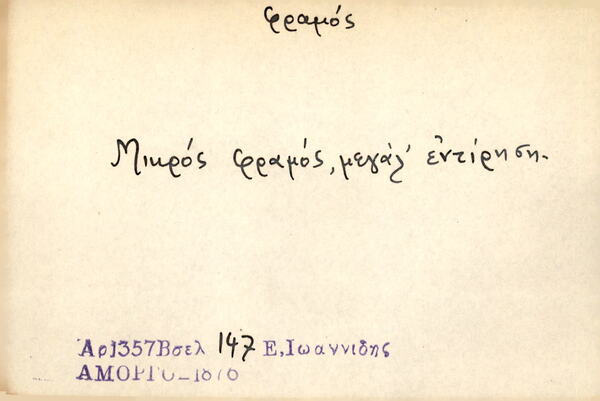 φραμός
Μικρός φραμός, μεγάλ' ἐντίρηση.
Αρ1357Βσελ 147 Ε,Ιωαννιδης
ΑΜΟΡΓΟ_1876